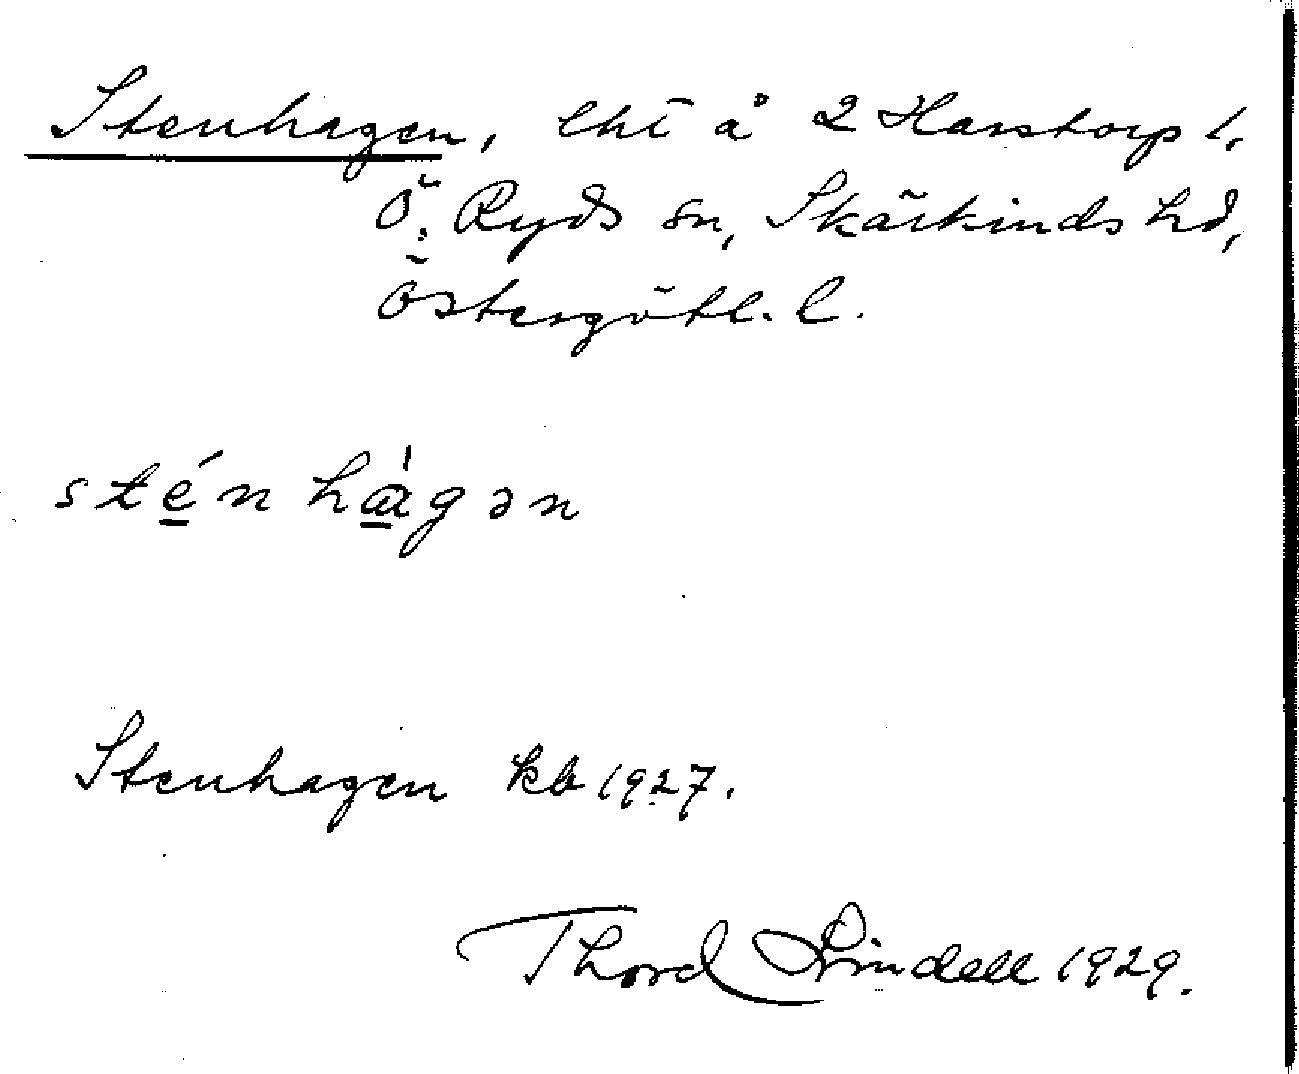 Stenhagen, lht å 2 Harstorp 1,
Ö. Ryds sn, Skärkinds hd,
Östergötl. l.
sténhàgən
Stenhagen kb 1927.
Thord Lindell 1929.